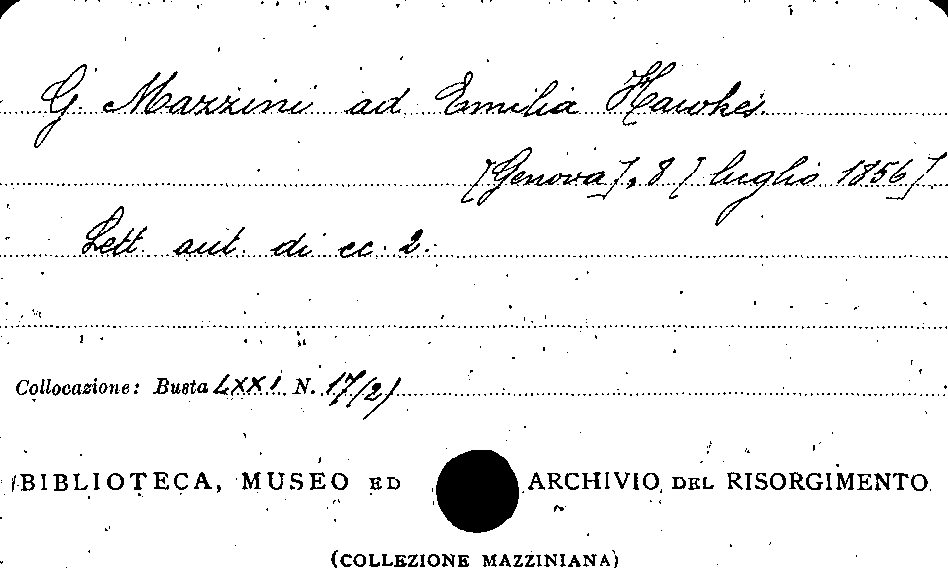 G. Mazzini ad Emilia Hawkes.
[Genova], 8 [luglio 1856]
Lett. aut. di cc. 2.
Collocazione: Busta LXXI N. 17(2)
BIBLIOTECA, MUSEO ED ARCHIVIO DEL RISORGIMENTO
(COLLEZIONE MAZZINIANA)